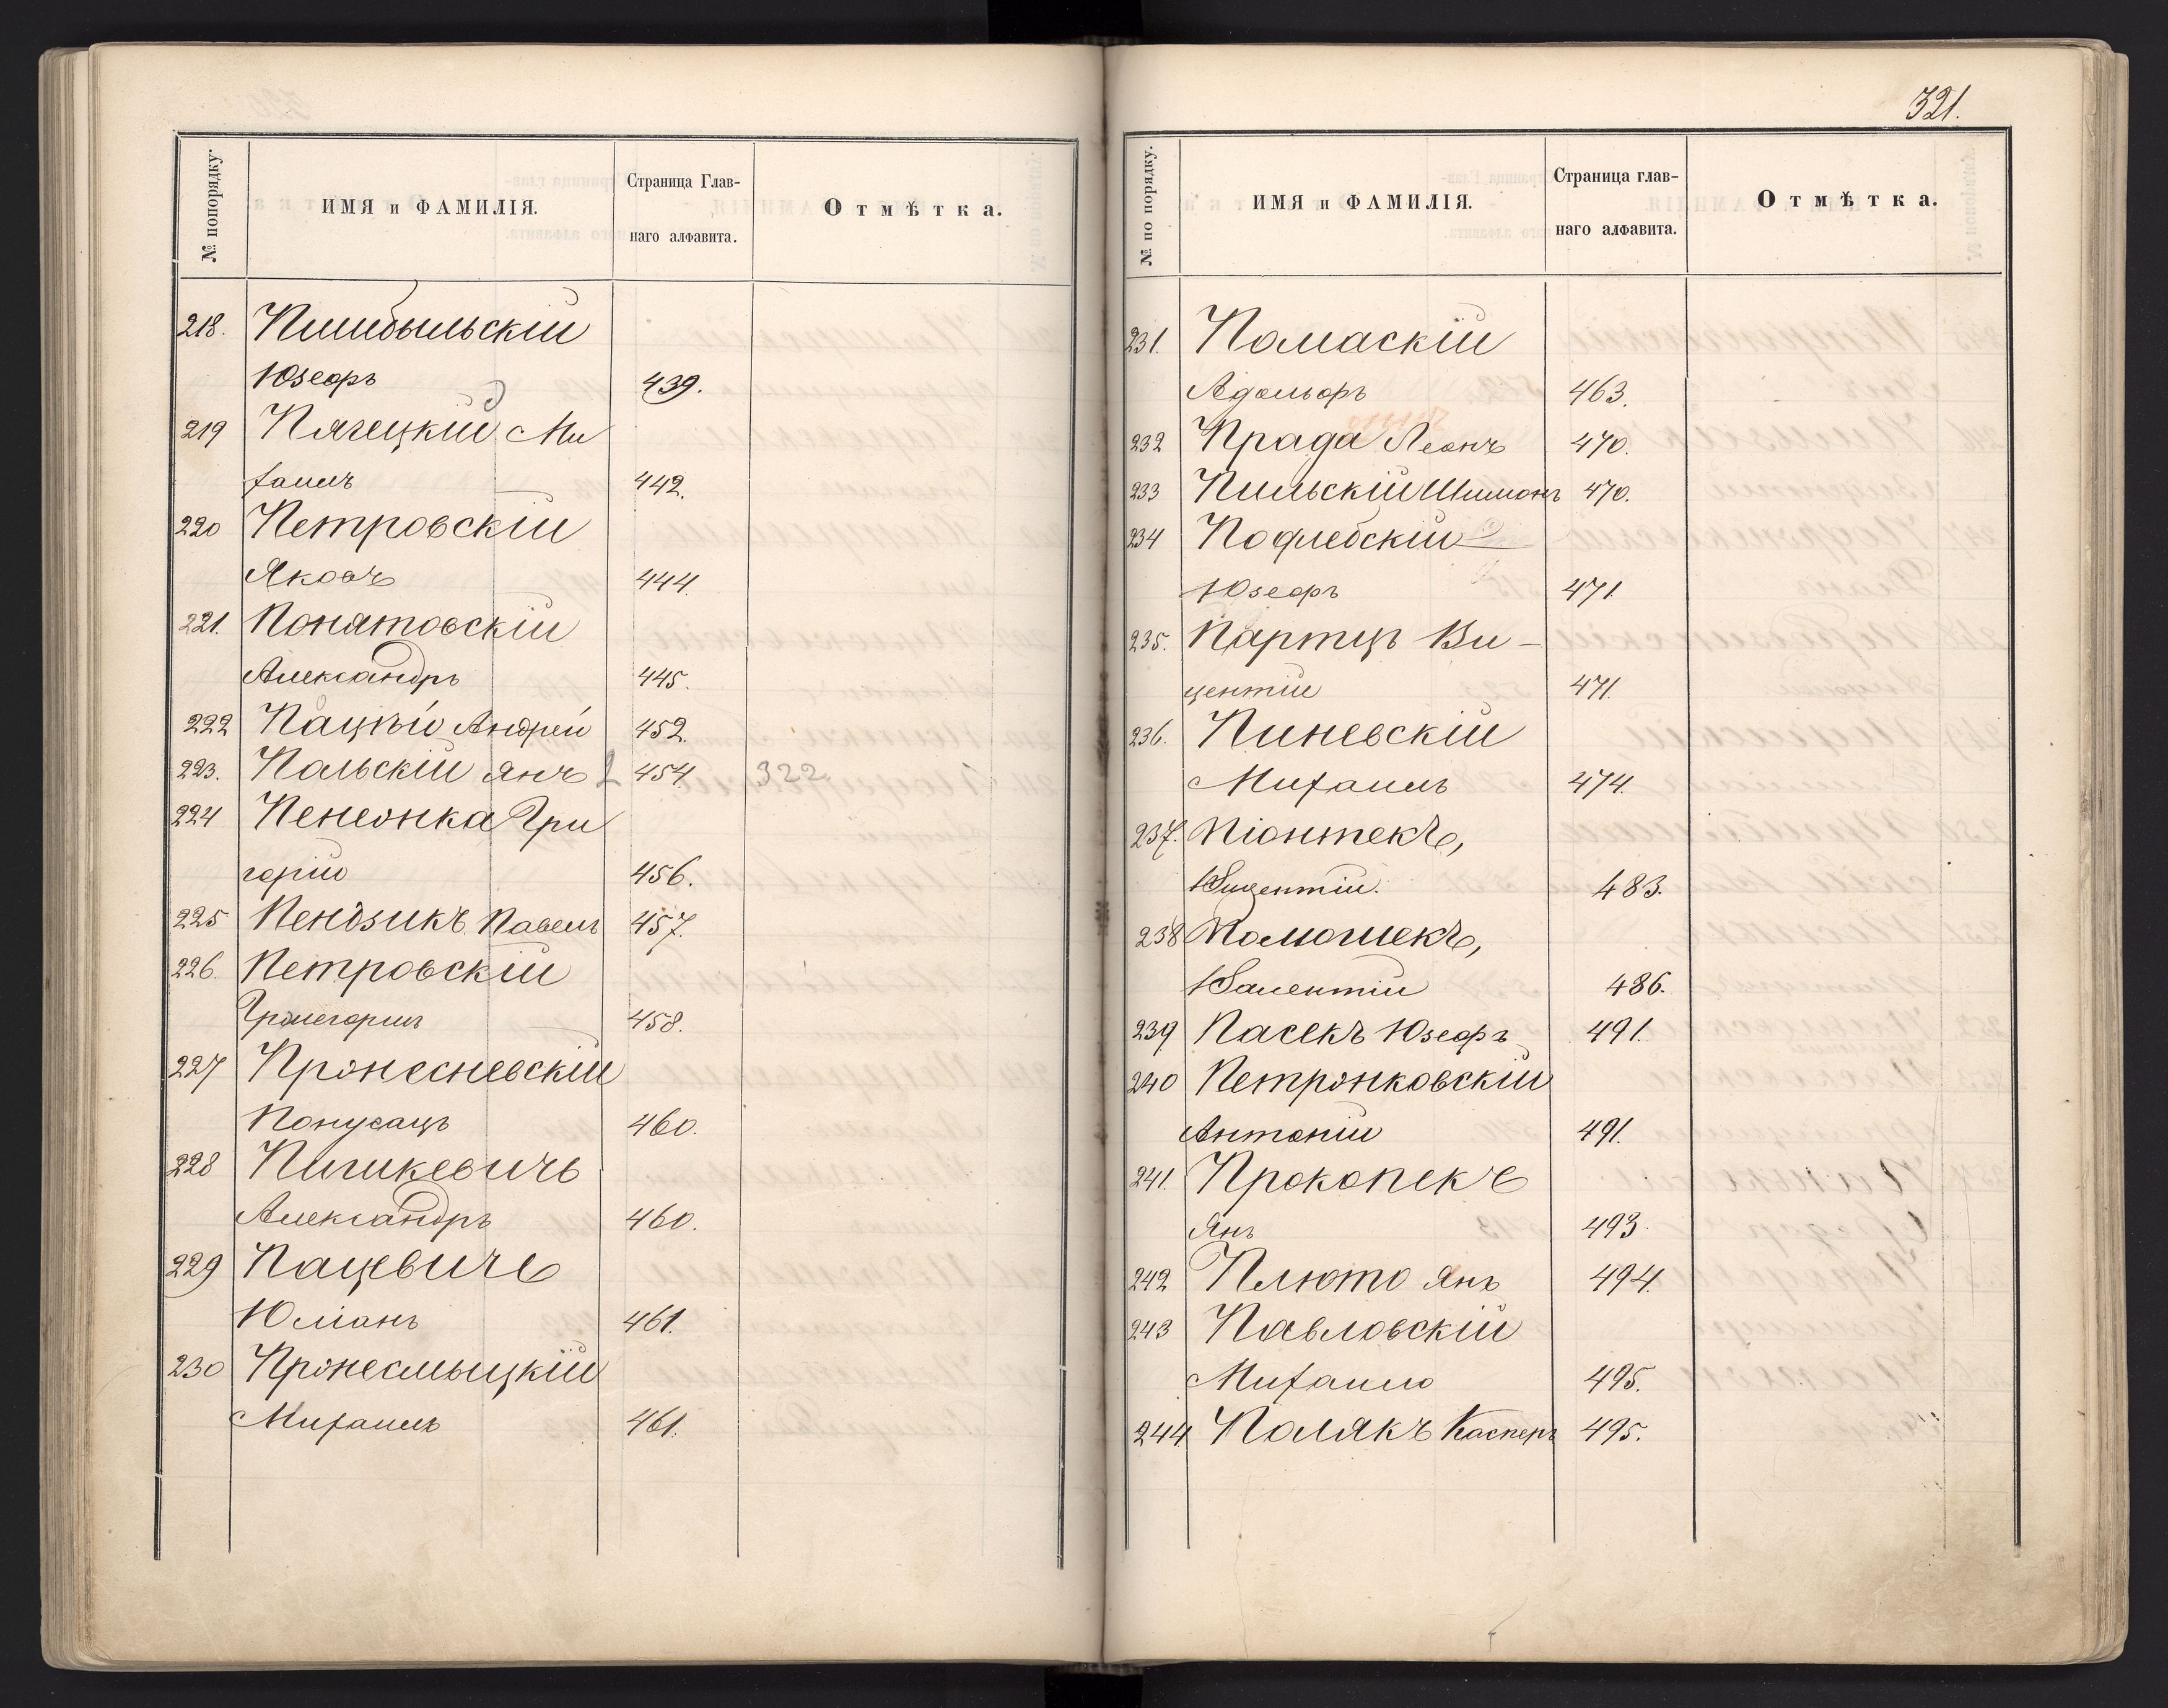 № попорядку.
ИМЯ и ФАМИЛІЯ.
Страница Глав-
наго алфавита.
Отмѣтка.
218. Пшибыльскій
Юзефъ 439.
219 Пягецкій Ми
хаилъ 442.
220 Петровскій
Яковъ 444.
221. Понятовскій
Александръ 445.
222 Пацкій Андрей 452.
223. Польскій Янъ 2 454. 322
224 Пенеонка Гри
горій 456.
225 Пендзикъ Павелъ 457.
226. Петровскій
458.
227 Пржесневскій
460.
228 Пигикевичъ
Александръ 460.
229 Пацевичъ
Юліанъ 461.
230 Пржесмыцкій
Михаилъ 461.
321.
№ по порядку.
ИМЯ и ФАМИЛІЯ.
Страница глав-
наго алфавита.
Отмѣтка.
231. Помаскій
Адольфъ 463.
232 Прада Леонъ 470.
233 Пильскій Шимонъ 470.
234 Пофлебскій
Юзефъ 471
235. Партцъ Ви-
центій 471.
236. Пиневскій
Михаилъ 474.
237. Піонтекъ,
Вицентій. 483.
238 Поможекъ,
Валентій 486.
239 Пасекъ Юзефъ 491.
240 Петржковскій
Антоній 491.
241. Прокопекъ
Янъ 493.
242 Плюто Янъ 494.
243 Павловскій
Михаилъ 495.
244 Полякъ Касперъ 495.